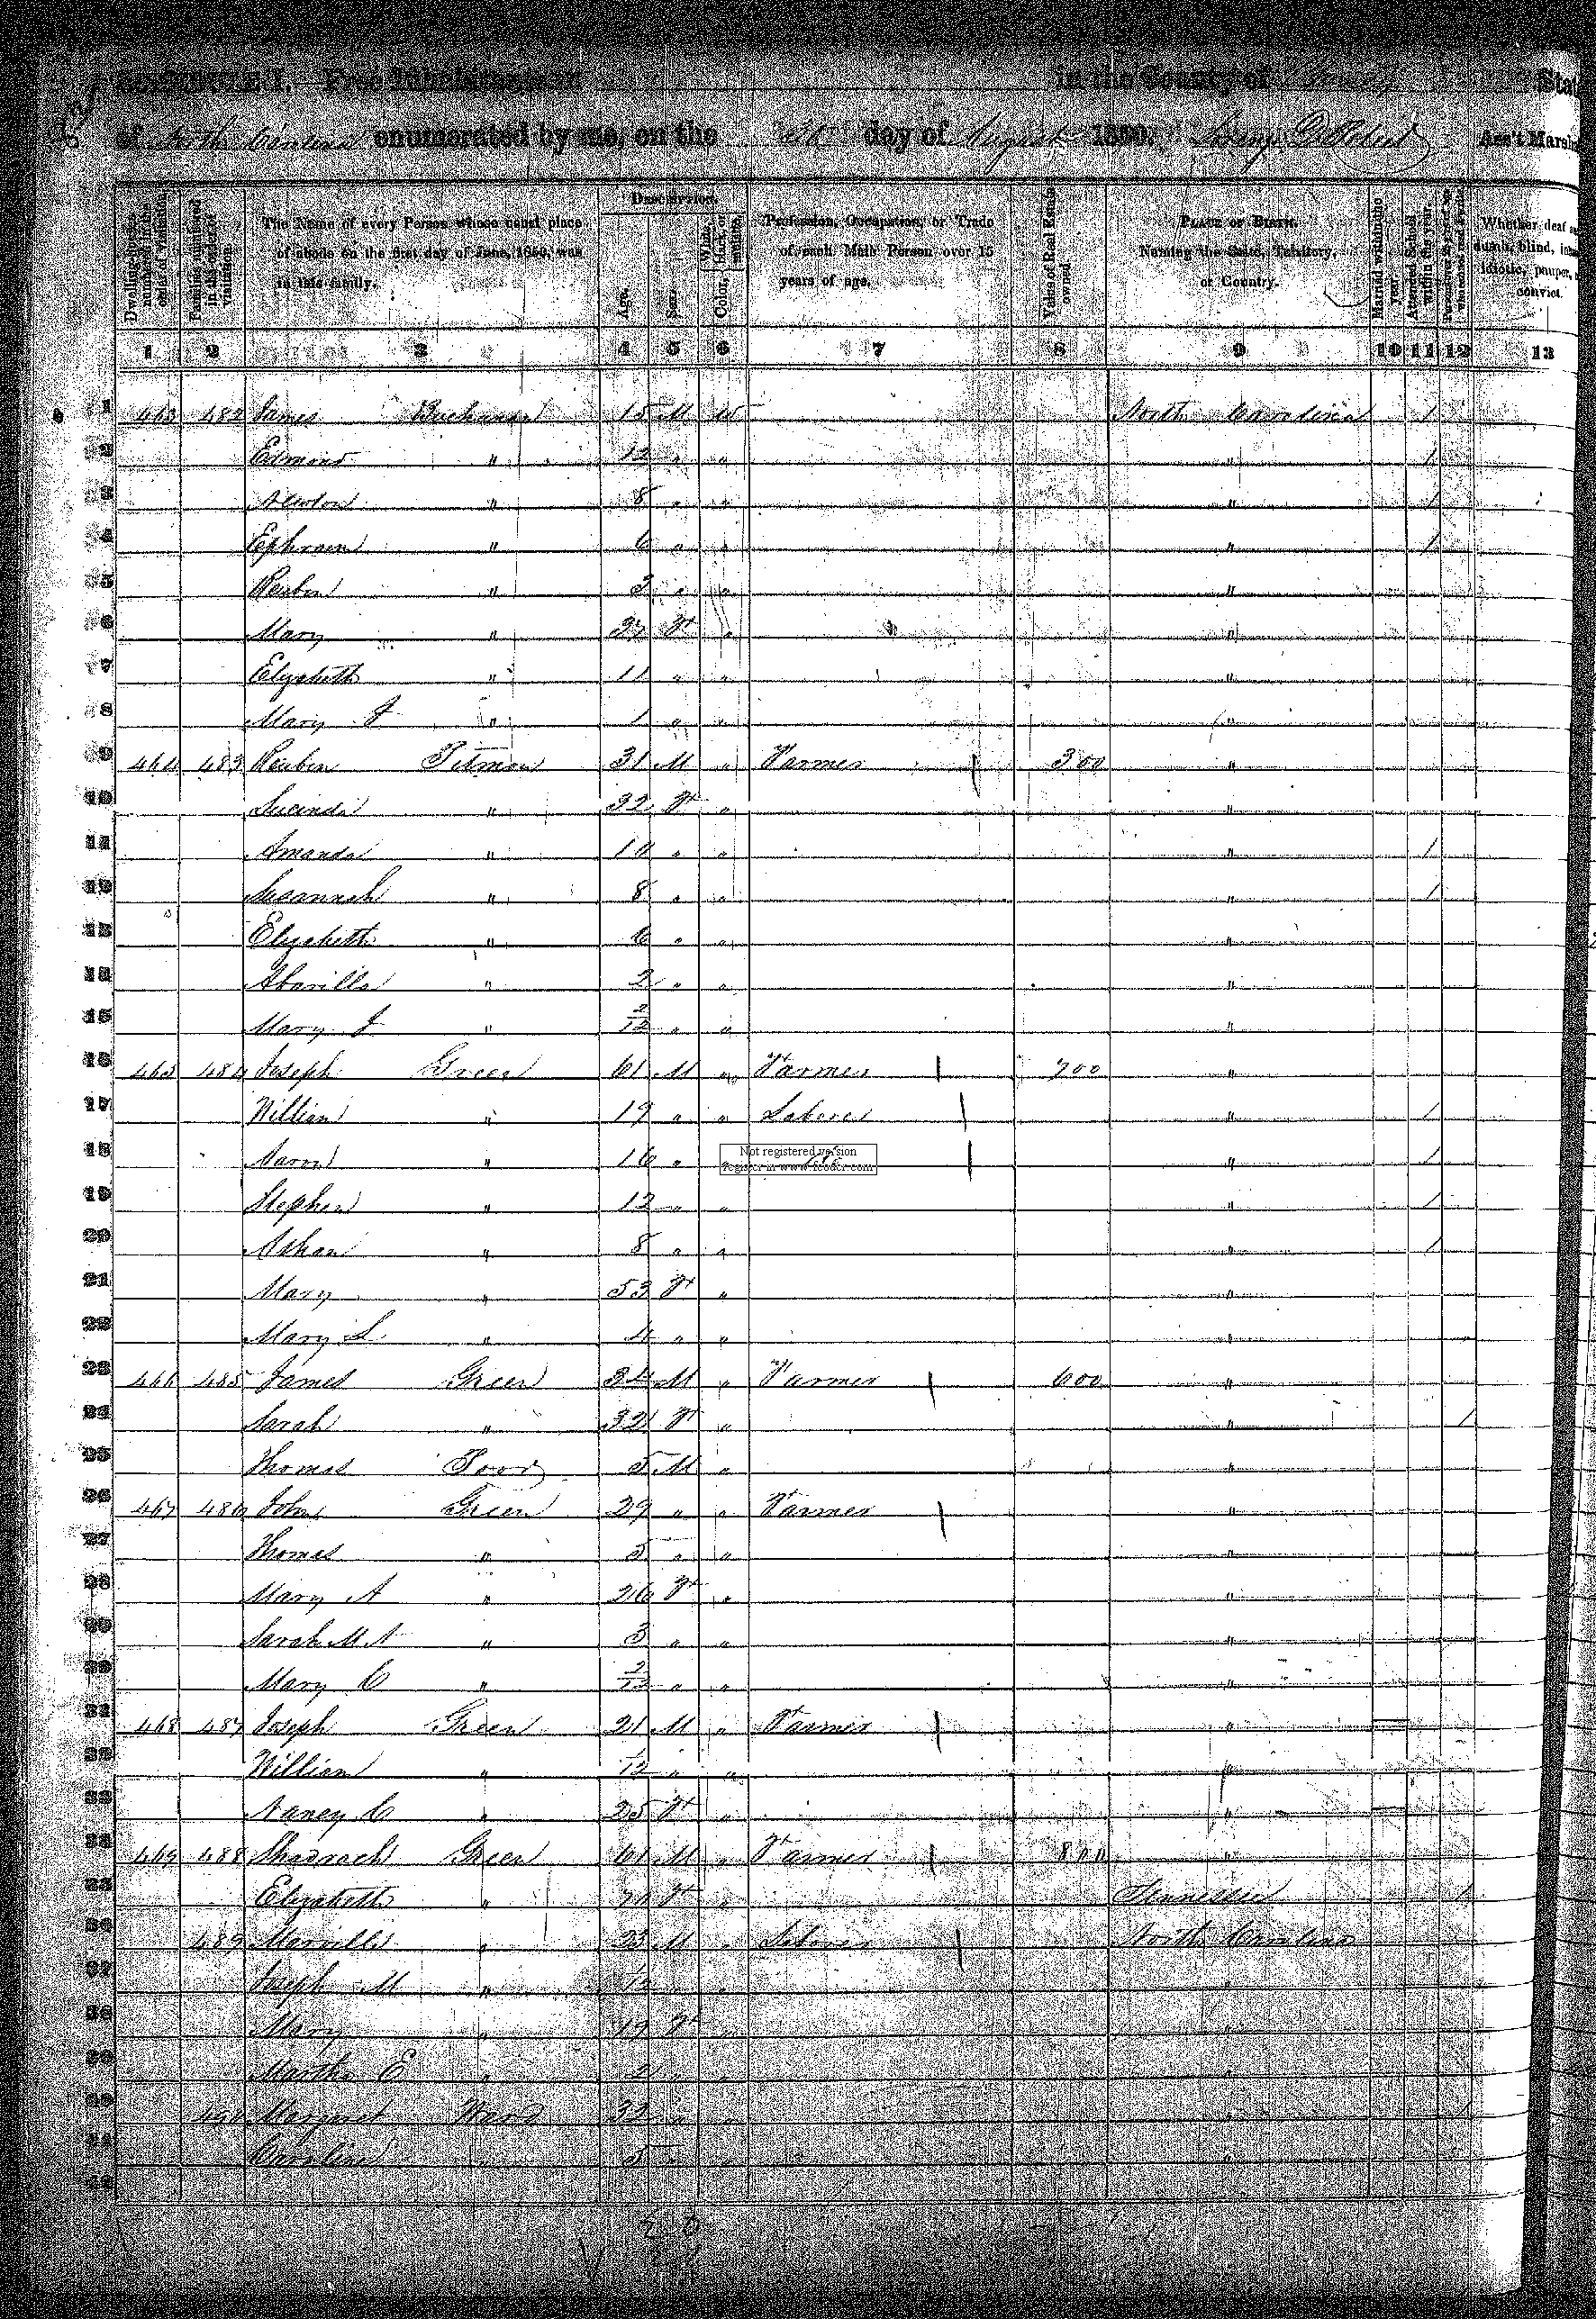 SCHEDULE I. Free Inhabitants in in the County of State
of North Carolina enumerated by me, on the day of August 1850. Ass't Marshal
Dwelling-houses numbered in the order of visitation.
Families numbered in the order of visitation.
The Name of every Person whose usual place of abode on the first day of June, 1850, was in this family.
Description.
Age.
Sex.
Color, White, black, or mulatto.
Profession, Occupation, or Trade of each Male Person over 15 years of age.
Value of Real Estate owned
Place of Birth. Naming the State, Territory, or Country.
Married within the year.
Attended School within the year.
Whether deaf and dumb, blind, insane, idiotic, pauper, or convict.
1 2 3 4 5 6 7 8 9 10 11 12 13
1 463 482 James Buchanan 15 M W North Carolina 1
2 Edmond " 12 " " " 1
3 Newton " 8 " " " 1
4 Ephraim " 6 " " " 1
5 Reuben " 3 " " "
6 Mary " 37 F " "
7 Elizabeth " 11 " " "
8 Mary J " 1 " " "
9 464 483 Reuben Pitman 31 M " Farmer 300 "
10 Lucinda " 32 F " "
11 Amanda " 10 " " " 1
12 Susannah " 8 " " " 1
13 Elizabeth " 6 " " "
14 " 2 " " "
15 Mary J " 2/12 " " "
16 465 484 Joseph Green 61 M " Farmer 200 "
17 William " 19 " " Laborer " 1
18 Aaron " 16 " " " 1
Not registered version
register in www
19 Stephen " 12 " " " 1
20 " 8 " " " 1
21 Mary " 53 F " "
22 Mary L " 4 " " "
23 466 485 James Green 34 M " Farmer 600 "
24 Sarah " 32 F " " 1
25 Thomas 5 M " "
26 467 486 John Green 29 " " Farmer "
27 Thomas " 5 " " "
28 Mary A " 26 F " "
29 Sarah M A " 3 " " "
30 Mary C " 2/12 " " "
31 468 487 Joseph Green 21 M " Farmer "
32 William " /12 " " "
33 Nancy C " 25 F " "
34 469 488 Shadrach Green 61 M " Farmer 800 "
35 Elizabeth " F " Tennessee 1
36 489 " 23 M " Laborer North Carolina
37 Joseph M " /12 " "
38 Mary " 19 F " "
39 Martha E " 2 " " "
40 490 Margaret Ward 32 " " "
41 Caroline " 5 " " "
42